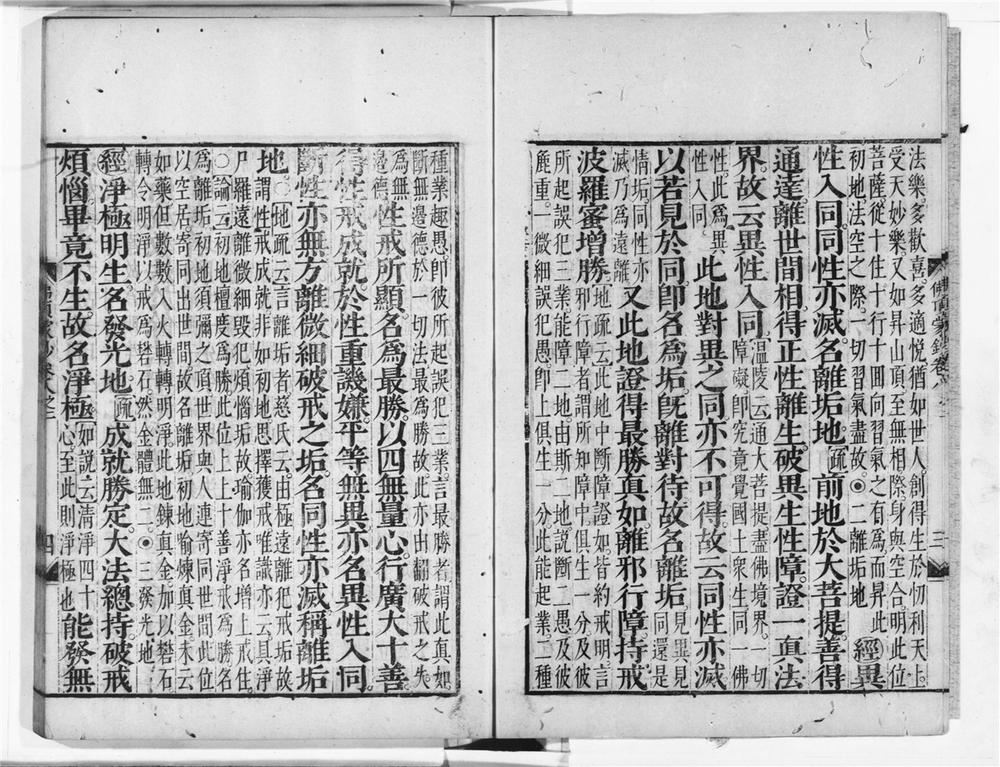 法樂。多歡喜多適悅猶如世人創得生於忉利天上
受天妙樂。又如昇山頂至無相際身與空合明此位
菩薩。從十住十行十回向習氣之有為而昇此
初地法空之際。一切習氣盡故。◉二離垢地
經異
性入同。同性亦滅。名離垢地。疏前地於大菩提。善得
通達。離世間相。得正性離生。破異生性障。證一真法
界。故云異性入同。
溫陵云。通大菩提盡佛境界。一切
障礙。即究竟覺國土眾生同一佛
性。此為異
性入同。
此地對異之同亦不可得。故云同性亦滅
以若見於同。即名為垢。既離對待故名離垢。
見
同還是
情垢。同性亦
滅乃為遠離
又此地證得最勝真如。離邪行障。持戒
波羅蜜增勝
地疏云此地中斷障證如。皆約戒明。言
邪行障者。謂所知障中俱生一分及彼
所起誤犯三業。能障二地。由斯二地說斷二愚及彼
麤重。一微細誤犯愚。即上俱生一分此能起業。二種
種業趣愚。即彼所起誤犯三業言最勝者謂此真如
斷無邊德於一切法最為勝故此亦由翻破戒之失
為無
邊德
性戒所顯。名為最勝。以四無量心。行廣大十善。
得性戒成就。於性重譏嫌。平等無異。亦名異性入同。
斷性亦無。方離微細破戒之垢。名同性亦滅。稱離垢
地
○地疏云。言離垢者慈氏云。由極遠離犯戒垢故
謂性戒成就。非如初地思擇獲戒唯識亦云。具淨
尸羅遠離微細毀犯煩惱垢故瑜伽亦名增上戒住。
○論云初地檀度。此位上上十善淨戒為勝名
為離垢初地須彌之頂世界與人連寄同世間此位
以空居寄同出世間故名離垢初地喻煉真金未云
如藥但數數入火轉轉明淨。此地鍊真金加以礬石
轉令明淨以戒為礬石然金體無二◉三發光地
經淨極明生。名發光地。疏成就勝定。大法總持。破戒
煩惱畢竟不生。故名淨極
如說云清淨四十
心至此則淨極也
能發無